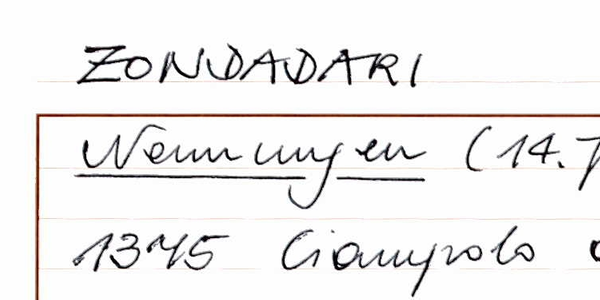 ZONDADARI
Nennungen (14.
1345 Ciampolo